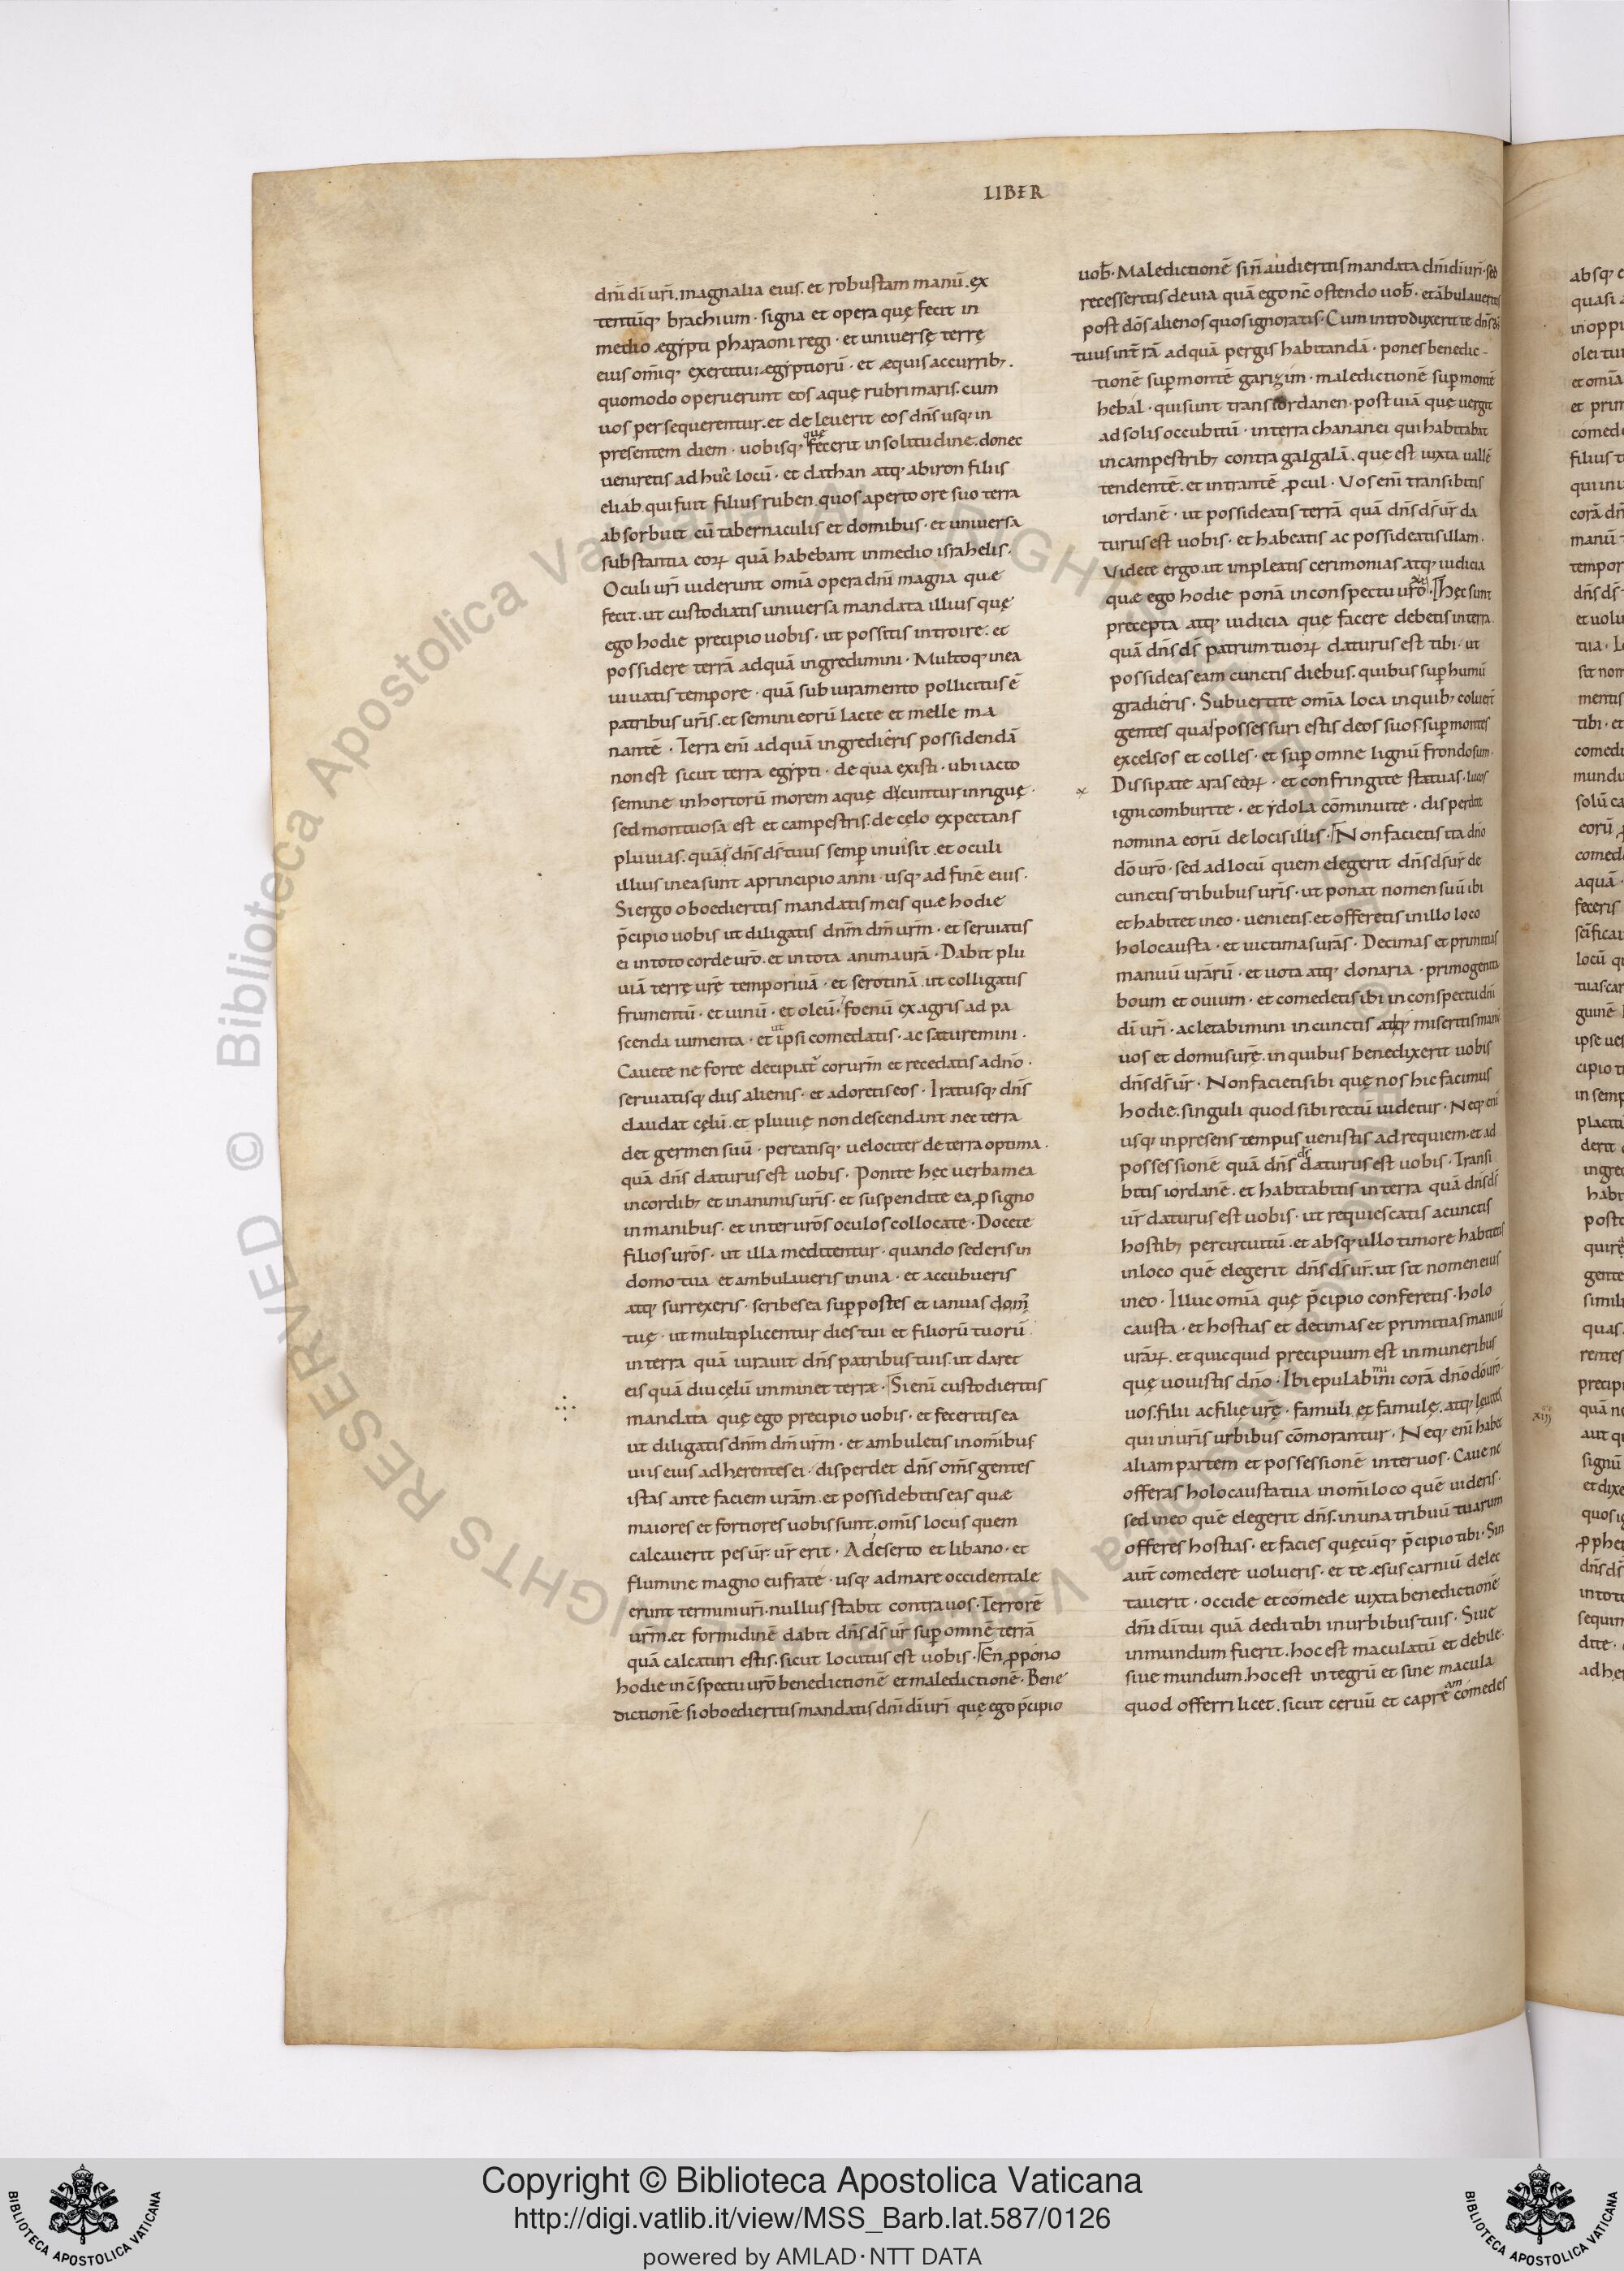 LIBER
dn̄i dī ur̄i. magnalia eius. et robustam manū. ex
tentūq; brachium · signa et opera quę fecit in
medio ægypti pharaoni regi · et universę terrę
eius om̄iq; exercitui ægyptiorū · et æquis ac currib; .
quomodo operuerunt eos aquę rubri maris. cum
vos persequerentur. et deleverit eos dn̄s usq; in
presentem diem · vobisq; quę fecerit in solitudine. donec
veniretis ad hūc locū · et dathan atq; abiron filiis
eliab. qui fuit filius ruben. quos aperto ore suo terra
absorbuit cū tabernaculis et domibus · et universa
substantia eoꝝ quā habebant in medio israhelis ·
Oculi ur̄i viderunt om̄ia opera dn̄i magna quæ
fecit. ut custodiatis universa mandata illius quę
ego hodie precipio vobis · ut possitis introire. et
possidere terrā ad quā ingredimini · Multoq; in ea
vivatis tempore · quā sub iuramento pollicitus ē
patribus ur̄is. et semini eorū lacte et melle ma
nantē · Terra enī ad quā ingredieris possidendā
non est sicut terra egypti · de qua existi · ubi iacto
semine in hortorū morem aquę ducuntur inriguę ·
sed montuosa est et campestris. de cęlo expectans
pluvias. quā s̄ dn̄s ds̄ tuus semp̄ invisit. et oculi
illius in ea sunt a principio anni · usq; ad finē eius ·
Si ergo oboedieritis mandatis meis quæ hodie
p̄cipio vobis ut diligatis dn̄m dm̄ ur̄m · et serviatis
ei in toto corde ur̄o. et in tota anima ur̄a · Dabit plu
viā terrę ur̄ę temporivā · et serotinā. ut colligatis
frumentū · et vinū · et oleū · foenū ex agris ad pa
scenda iumenta · et ut ipsi comedatis · ac saturemini ·
Cavete ne forte decipiat̄ cor ur̄m et recedatis a dn̄o ·
serviatisq; diis alienis · et adoretis eos · Iratusq; dn̄s
claudat cęlū. et pluvię non descendant nec terra
det germen suū · pereatisq; velociter de terra optima ·
quā dn̄s daturus est vobis · Ponite hęc verba mea
in cordib; et in animis ur̄is · et suspendite ea ꝓ signo
in manibus · et inter ur̄os oculos collocate · Docete
filios ur̄os · ut illa meditentur · quando sederis in
domo tua et ambulaveris in via · et accubueris
atq; surrexeris · scribes ea sup̄ postes et ianuas dom̄
tuę · ut multiplicentur dies tui et filiorū tuorū
in terra quā iuravit dn̄s patribus tuis. ut daret
eis quā diu cęlū imminet terræ · Si enī custodieritis
mandata quę ego precipio vobis · et feceritis ea
ut diligatis dn̄m dm̄ ur̄m · et ambuletis in om̄ibus
viis eius adherentes ei · disperdet dn̄s om̄s gentes
istas ante faciem ur̄am. et possidebitis eas quæ
maiores et fortiores vobis sunt. om̄is locus quem
calcaverit pes ur̄ · ur̄ erit · A deserto et libano · et
flumine magno eufrate · usq; ad mare occidentale
erunt termini ur̄i · nullus stabit contra vos · Terrorē
ur̄m. et formidinē dabit dn̄s ds̄ ur̄ sup̄ omnē terrā
quā calcaturi estis. sicut locutus est vobis · En ꝓpono
hodie in c̄spectu ur̄o benedictionē et maledictionē · Bene
dictionē si oboedieritis mandatis dn̄i dī ur̄i quę ego p̄cipio
vob̄ · Maledictionē si n̄ audieritis mandata dn̄i dī ur̄i · sed
recesseritis de via quā ego nc̄ ostendo vob̄ · et ābulaveritis
post dōs alienos quos ignoratis · Cum introduxerit te dn̄s ds̄
tuus in t̄rā ad quā pergis habitandā · pones benedic-
tionē sup̄ montē garizim · maledictionē sup̄ montē
hebal · qui sunt trans iordanen · post viā quę vergit
ad solis occubitū · in terra chananei qui habitabat
in campestrib; contra galgalā. quę est iuxta vallē
tendentē. et intrantē ꝓcul · Vos enī transibitis
iordanē · ut possideatis terrā quā dn̄s ds̄ ur̄ da
turus est vobis · et habeatis ac possideatis illam ·
Videte ergo. ut impleatis cerimonias atq; iudicia
quæ ego hodie ponā in conspectu ur̄o · Hęc sunt
precepta atq; iudicia quę facere debetis in terra
quā dn̄s ds̄ patrum tuoꝝ daturus est tibi · ut
possideas eam cunctis diebus. quibus sup̄ humū
gradieris · Subvertite om̄ia loca in quib; coluert̄
gentes quas possessuri estis deos suos. sup̄ montes
excelsos et colles · et sup̄ omne lignū frondosum ·
Dissipate aras eoꝝ · et confringite statuas · lucos
igni comburite · et ydola cōminuite · disperdite
nomina eorū de locis illis · Non facietis ita dn̄o
dō ur̄o · sed ad locū quem elegerit dn̄s ds̄ ur̄ de
cunctis tribubus ur̄is · ut ponat nomen suū ibi
et habitet in eo · venietis. et offeretis in illo loco
holocausta · et victimas ur̄as · Decimas et primitias
manuū ur̄arū · et vota atq; donaria · primogenita
boum et ovium · et comedetis ibi in conspectu dn̄i
dī ur̄i · ac letabimini in cunctis ad q; miseritis manū
vos et domus ur̄ę. in quibus benedixerit vobis
dn̄s ds̄ ur̄ · Non facietis ibi quę nos hic facimus
hodie. singuli quod sibi rectū videtur · Neq; enī
usq; in presens tempus venistis ad requiem. et ad
possessionē quā dn̄s ds̄ daturus est vobis · Transi
bitis iordanē. et habitabitis in terra quā dn̄s ds̄
ur̄ daturus est vobis · ut requiescatis a cunctis
hostib; per circuitū. et absq; ullo timore habitetis
in loco quē elegerit dn̄s ds̄ ur̄. ut sit nomen eius
in eo · Illuc om̄ia quę p̄cipio conferetis · holo
causta · et hostias et decimas et primitias manuū
ur̄aꝝ. et quicquid precipuum est in muneribus
quę vovistis dn̄o · Ibi epulabimini corā dn̄o dō ur̄o ·
vos. filii ac filię ur̄ę · famuli et famulę. atq; levites
qui in ur̄is urbibus cōmorantur · Neq; enī habet
aliam partem et possessionē inter vos · Cave ne
offeras holocausta tua in om̄i loco quē videris ·
sed in eo quē elegerit dn̄s. in una tribuū tuarum
offeres hostias · et facies quęcūq; p̄cipio tibi · Sin
aut̄ comedere volueris · et te æsus carniū delec
taverit · occide et comede iuxta benedictionē
dn̄i dī tui quā dedit tibi in urbibus tuis · Sive
inmundum fuerit. hoc est maculatū et debile ·
sive mundum. hoc est integrū et sine macula
quod offerri licet. sicut cervū et capream comedes
xiij
Copyright © Biblioteca Apostolica Vaticana
http://digi.vatlib.it/view/MSS_Barb.lat.587/0126
powered by AMLAD · NTT DATA
BIBLIOTECA APOSTOLICA VATICANA
BIBLIOTECA APOSTOLICA VATICANA